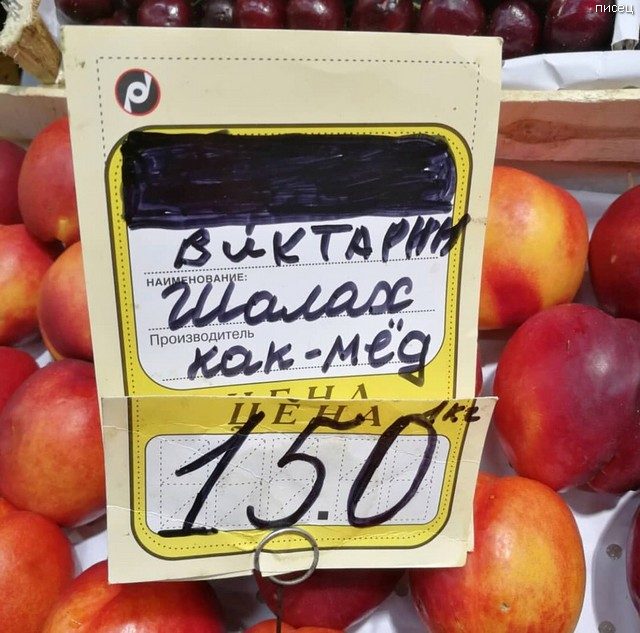 писец
ВИКТАРИН
НАИМЕНОВАНИЕ:
Шалах
Производитель
как-мёд
ЦЕНА
ЦЕНА
1кг
150